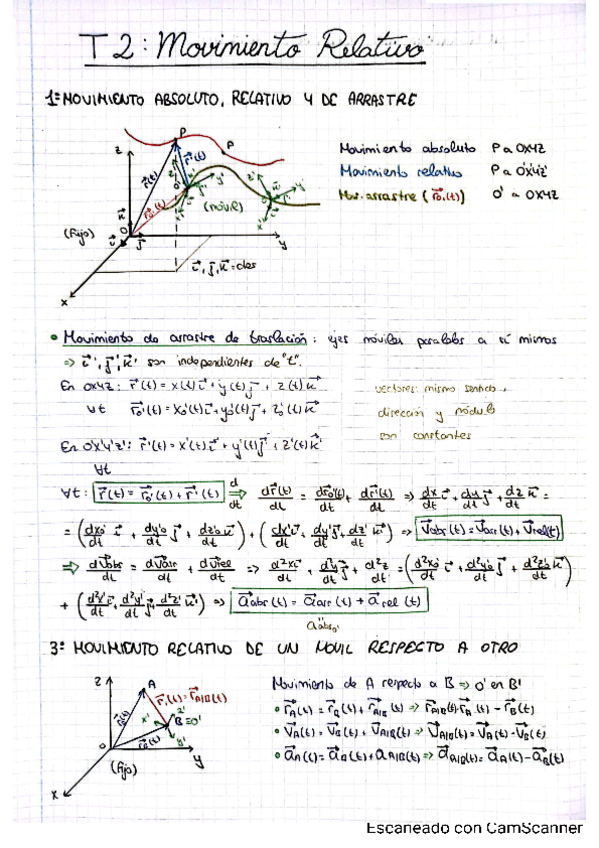 T2: Movimiento Relativo
1º MOVIMIENTO ABSOLUTO, RELATIVO Y DE ARRASTRE
Movimiento absoluto P a OXYZ
Movimiento relativo P a O'X'Y'Z'
Mov. arrastre (r⃗o'(t)) O' a OXYZ
z
P
A
r⃗(t)
r⃗'(t)
r⃗o'(t)
(móvil)
(fijo)
O
y
x
i⃗, j⃗, k⃗ = ctes
• Movimiento de arrastre de traslación: ejes móviles paralelos a sí mismos
⇒ i⃗', j⃗', k⃗' son independientes de "t".
En OXYZ: r⃗(t) = x(t)i⃗ + y(t)j⃗ + z(t)k⃗
∀t r⃗o'(t) = xo'(t)i⃗ + yo'(t)j⃗ + zo'(t)k⃗
vectores: mismo sentido,
dirección y módulo
son constantes
En O'X'Y'Z': r⃗'(t) = x'(t)i⃗' + y'(t)j⃗' + z'(t)k⃗'
∀t
∀t: r⃗(t) = r⃗o'(t) + r⃗'(t) ⇒ d/dt dr⃗(t)/dt = dr⃗o'(t)/dt + dr⃗'(t)/dt ⇒ dx/dt i⃗ + dy/dt j⃗ + dz/dt k⃗ =
= (dxo'/dt i⃗ + dyo'/dt j⃗ + dzo'/dt k⃗) + (dx'/dt i⃗' + dy'/dt j⃗' + dz'/dt k⃗') ⇒ v⃗abs(t) = v⃗arr(t) + v⃗rel(t)
⇒ dv⃗abs/dt = dv⃗arr/dt + dv⃗rel/dt ⇒ d²x/dt i⃗ + d²y/dt j⃗ + d²z/dt = (d²xo'/dt i⃗ + d²yo'/dt j⃗ + d²zo'/dt k⃗)
+ (d²x'/dt i⃗' + d²y'/dt j⃗' + d²z'/dt k⃗') ⇒ a⃗abs(t) = a⃗arr(t) + a⃗rel(t)
3º MOVIMIENTO RELATIVO DE UN MÓVIL RESPECTO A OTRO
z
A
r⃗'(t) = r⃗A/B(t)
B ≡ O'
r⃗B(t)
x' y' z'
O
(fijo)
y
x
Movimiento de A respecto a B ⇒ O' en B!
• r⃗A(t) = r⃗B(t) + r⃗A/B(t) ⇒ r⃗A/B(t) = r⃗A(t) - r⃗B(t)
• v⃗A(t) = v⃗B(t) + v⃗A/B(t) ⇒ v⃗A/B(t) = v⃗A(t) - v⃗B(t)
• a⃗A(t) = a⃗B(t) + a⃗A/B(t) ⇒ a⃗A/B(t) = a⃗A(t) - a⃗B(t)
Escaneado con CamScanner